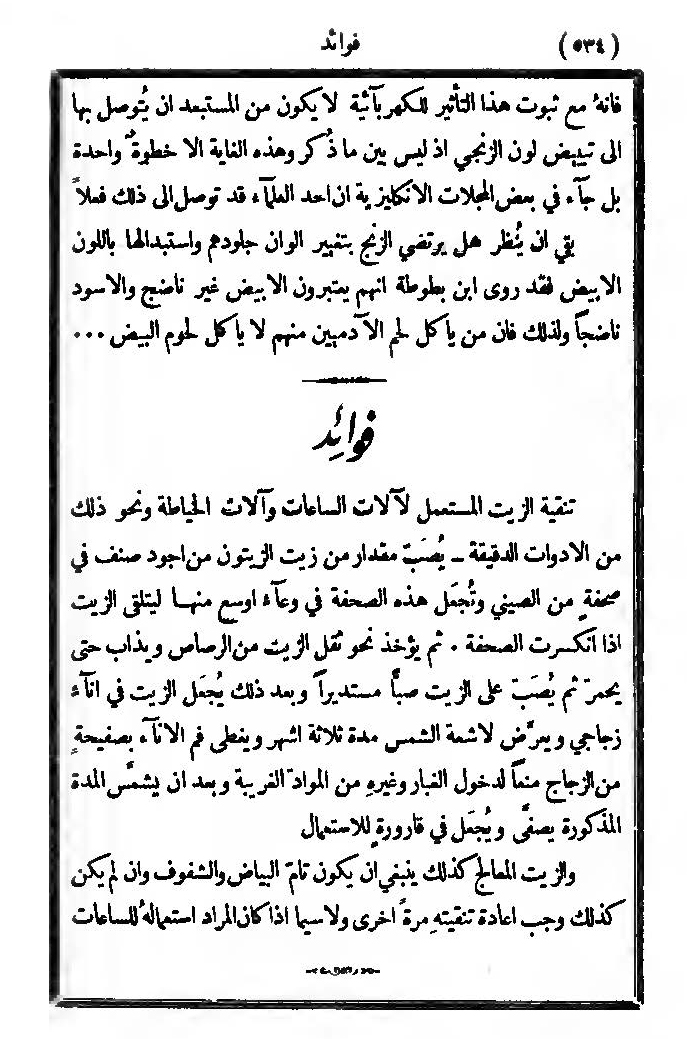 (٥٣٤) فوائد
فانهُ مع ثبوت هذا التأثير للكهربآئية لا يكون من المستبعد ان يُتوصل بها
الى تبييض لون الزنجي اذ ليس بين ما ذُكر وهذه الغاية الا خطوةٌ واحدة
بل جآء في بعض المجلات الانكليزية ان احد العلمآء قد توصل الى ذلك فعلاً
بقي ان يُنظر هل يرتضي الزنج بتغيير الوان جلودهم واستبدالها باللون
الابيض فقد روى ابن بطوطة انهم يعتبرون الابيض غير ناضج والاسود
ناضجاً ولذلك فان من ياكل لحم الآدميين منهم لا ياكل لحوم البيض ...
فوائد
تنقية الزيت المستعمل لآلات الساعات وآلات الخياطة ونحو ذلك
من الادوات الدقيقة ــ يُصَبّ مقدار من زيت الزيتون من اجود صنف في
صحفةٍ من الصيني وتُجعَل هذه الصحفة في وعآء اوسع منهـا ليتلقى الزيت
اذا انكسرت الصحفة . ثم يؤخذ نحو ثقل الزيت من الرصاص ويذاب حتى
يحمرّ ثم يُصَبّ على الزيت صبّاً مستديراً وبعد ذلك يُجعَل الزيت في انآء
زجاجي ويعرَّض لاشعة الشمس مدة ثلاثة اشهر ويغطى فم الانآء بصفيحةٍ
من الزجاج منعاً لدخول الغبار وغيرهِ من الموادّ الغريبة وبعد ان يشمَّس المدة
المذكورة يصفَّى ويُجعَل في قارورةٍ للاستعمال
والزيت المعالج كذلك ينبغي ان يكون تامّ البياض والشفوف وان لم يكن
كذلك وجب اعادة تنقيتهِ مرةً اخرى ولا سيما اذا كان المراد استعمالهُ للساعات